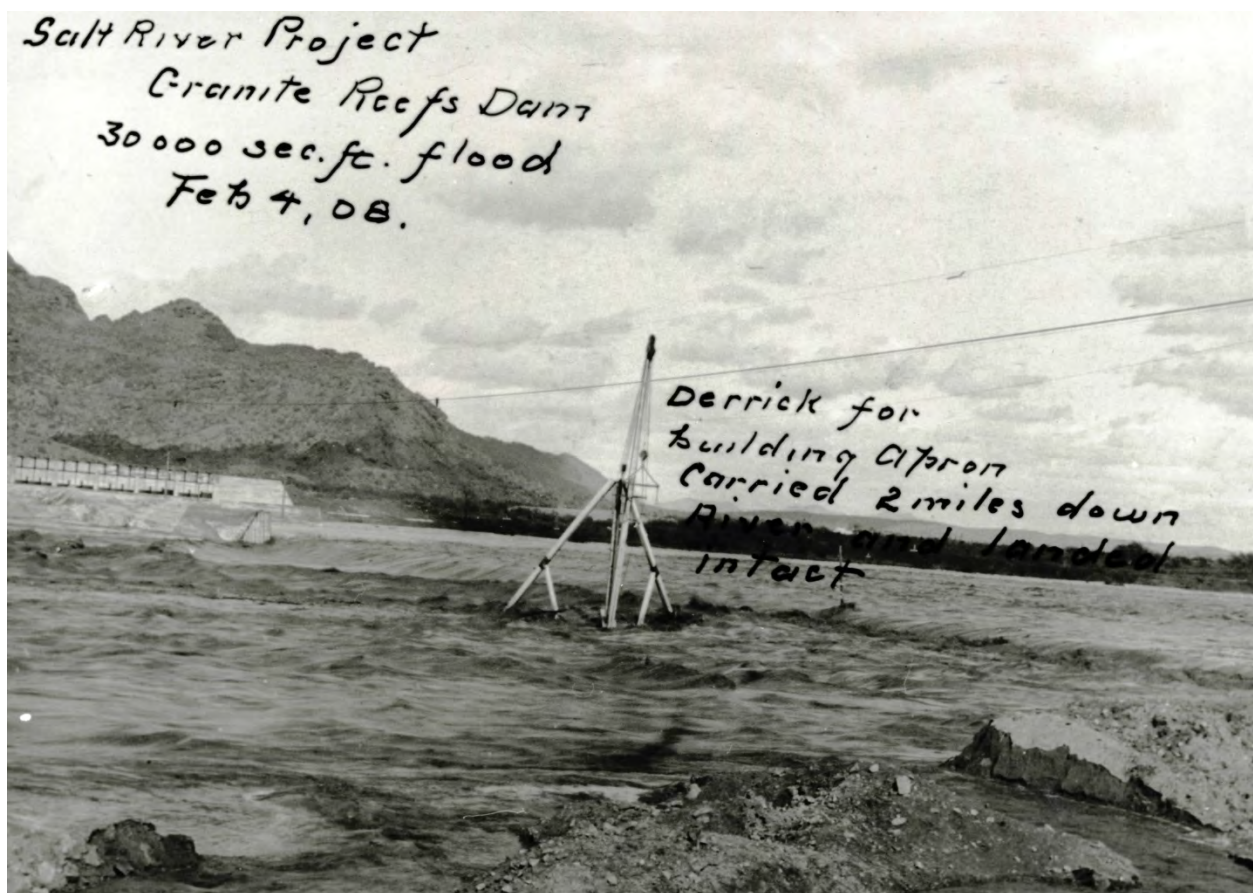 Salt River Project
Granite Reefs Dam
30000 sec. ft. flood
Feb 4, 08.
Derrick for
building apron
Carried 2 miles down
River and landed
intact